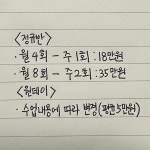 <정규반>
· 월 4회 - 주 1회 : 18만원
· 월 8회 - 주 2회 : 35만원
<원데이>
· 수업내용에 따라 변경(평균 5만원)